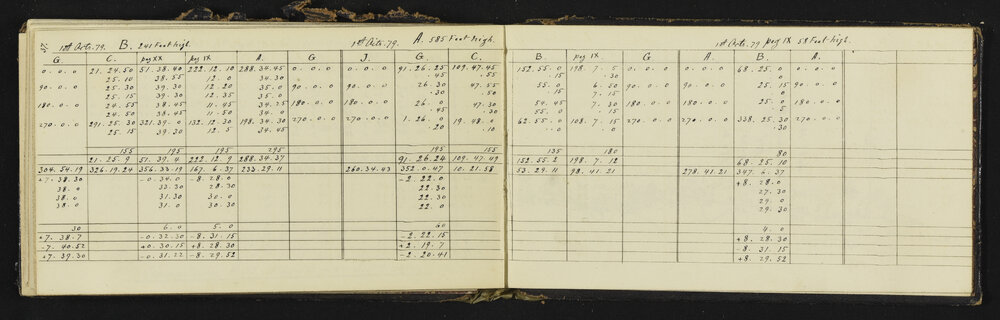 1st Octr. 79. B. 241 Foot high. 1st Octr. 79. A. 585 Foot high.
G C. peg XX peg IX A. G J. G C.
0.0.0 21.24.50 51.38.40 222.12.10 288.34.45 0.0.0 0.0.0 91.26.25 109.47.45
25.10 38.55 12.0 34.30 .45 .55
90.0.0 25.30 39.30 12.20 35.0 90.0.0 90.0.0 26.30 47.55
25.15 39.30 12.35 35.0 .30 .50
180.0.0 24.55 38.45 11.45 34.25 180.0.0 180.0.0 26.0 47.30
24.50 38.45 11.50 34.0 .45 .30
270.0.0 291.25.30 321.39.0 132.12.30 198.34.30 270.0.0 270.0.0 1.26.0 19.48.0
25.15 39.30 12.5 34.45 .20 .10
155 195 195 295 195 155
21.25.9 51.39.4 222.12.9 288.34.37 91.26.24 109.47.49
304.54.19 326.19.24 356.33.19 167.6.37 233.29.11 260.34.43 352.0.47 10.21.58
+7.38.30 -0.34.0 -8.28.0 -2.22.0
38.0 33.30 28.30 22.30
38.0 31.30 30.0 22.30
38.0 31.0 30.30 22.0
30 6.0 5.0 60
+7.38.7 -0.32.30 -8.31.15 -2.22.15
-7.40.52 +0.30.15 +8.28.30 +2.19.7
+7.39.30 -0.31.22 -8.29.52 -2.20.41
1st Octr. 79 peg IX 58 Foot high.
B peg IX G G A. B. A.
152.55.0 198.7.5 0.0.0 0.0.0 68.25.0 0.0.0
.15 .30 .0
90.0.0 55.0 6.50 90.0.0 90.0.0 25.15 90.0.0
.15 7.15 .15
180.0.0 54.45 7.30 180.0.0 180.0.0 25.0 180.0.0
55.0 .15 .5
270.0.0 62.55.0 108.7.15 270.0.0 270.0.0 338.25.30 270.0.0
.0 .0 .30
135 180 80
152.55.2 198.7.12 68.25.10
53.29.11 98.41.21 278.41.21 347.6.37
+8.28.0
27.30
29.0
29.30
4.0
+8.28.30
-8.31.15
+8.29.52